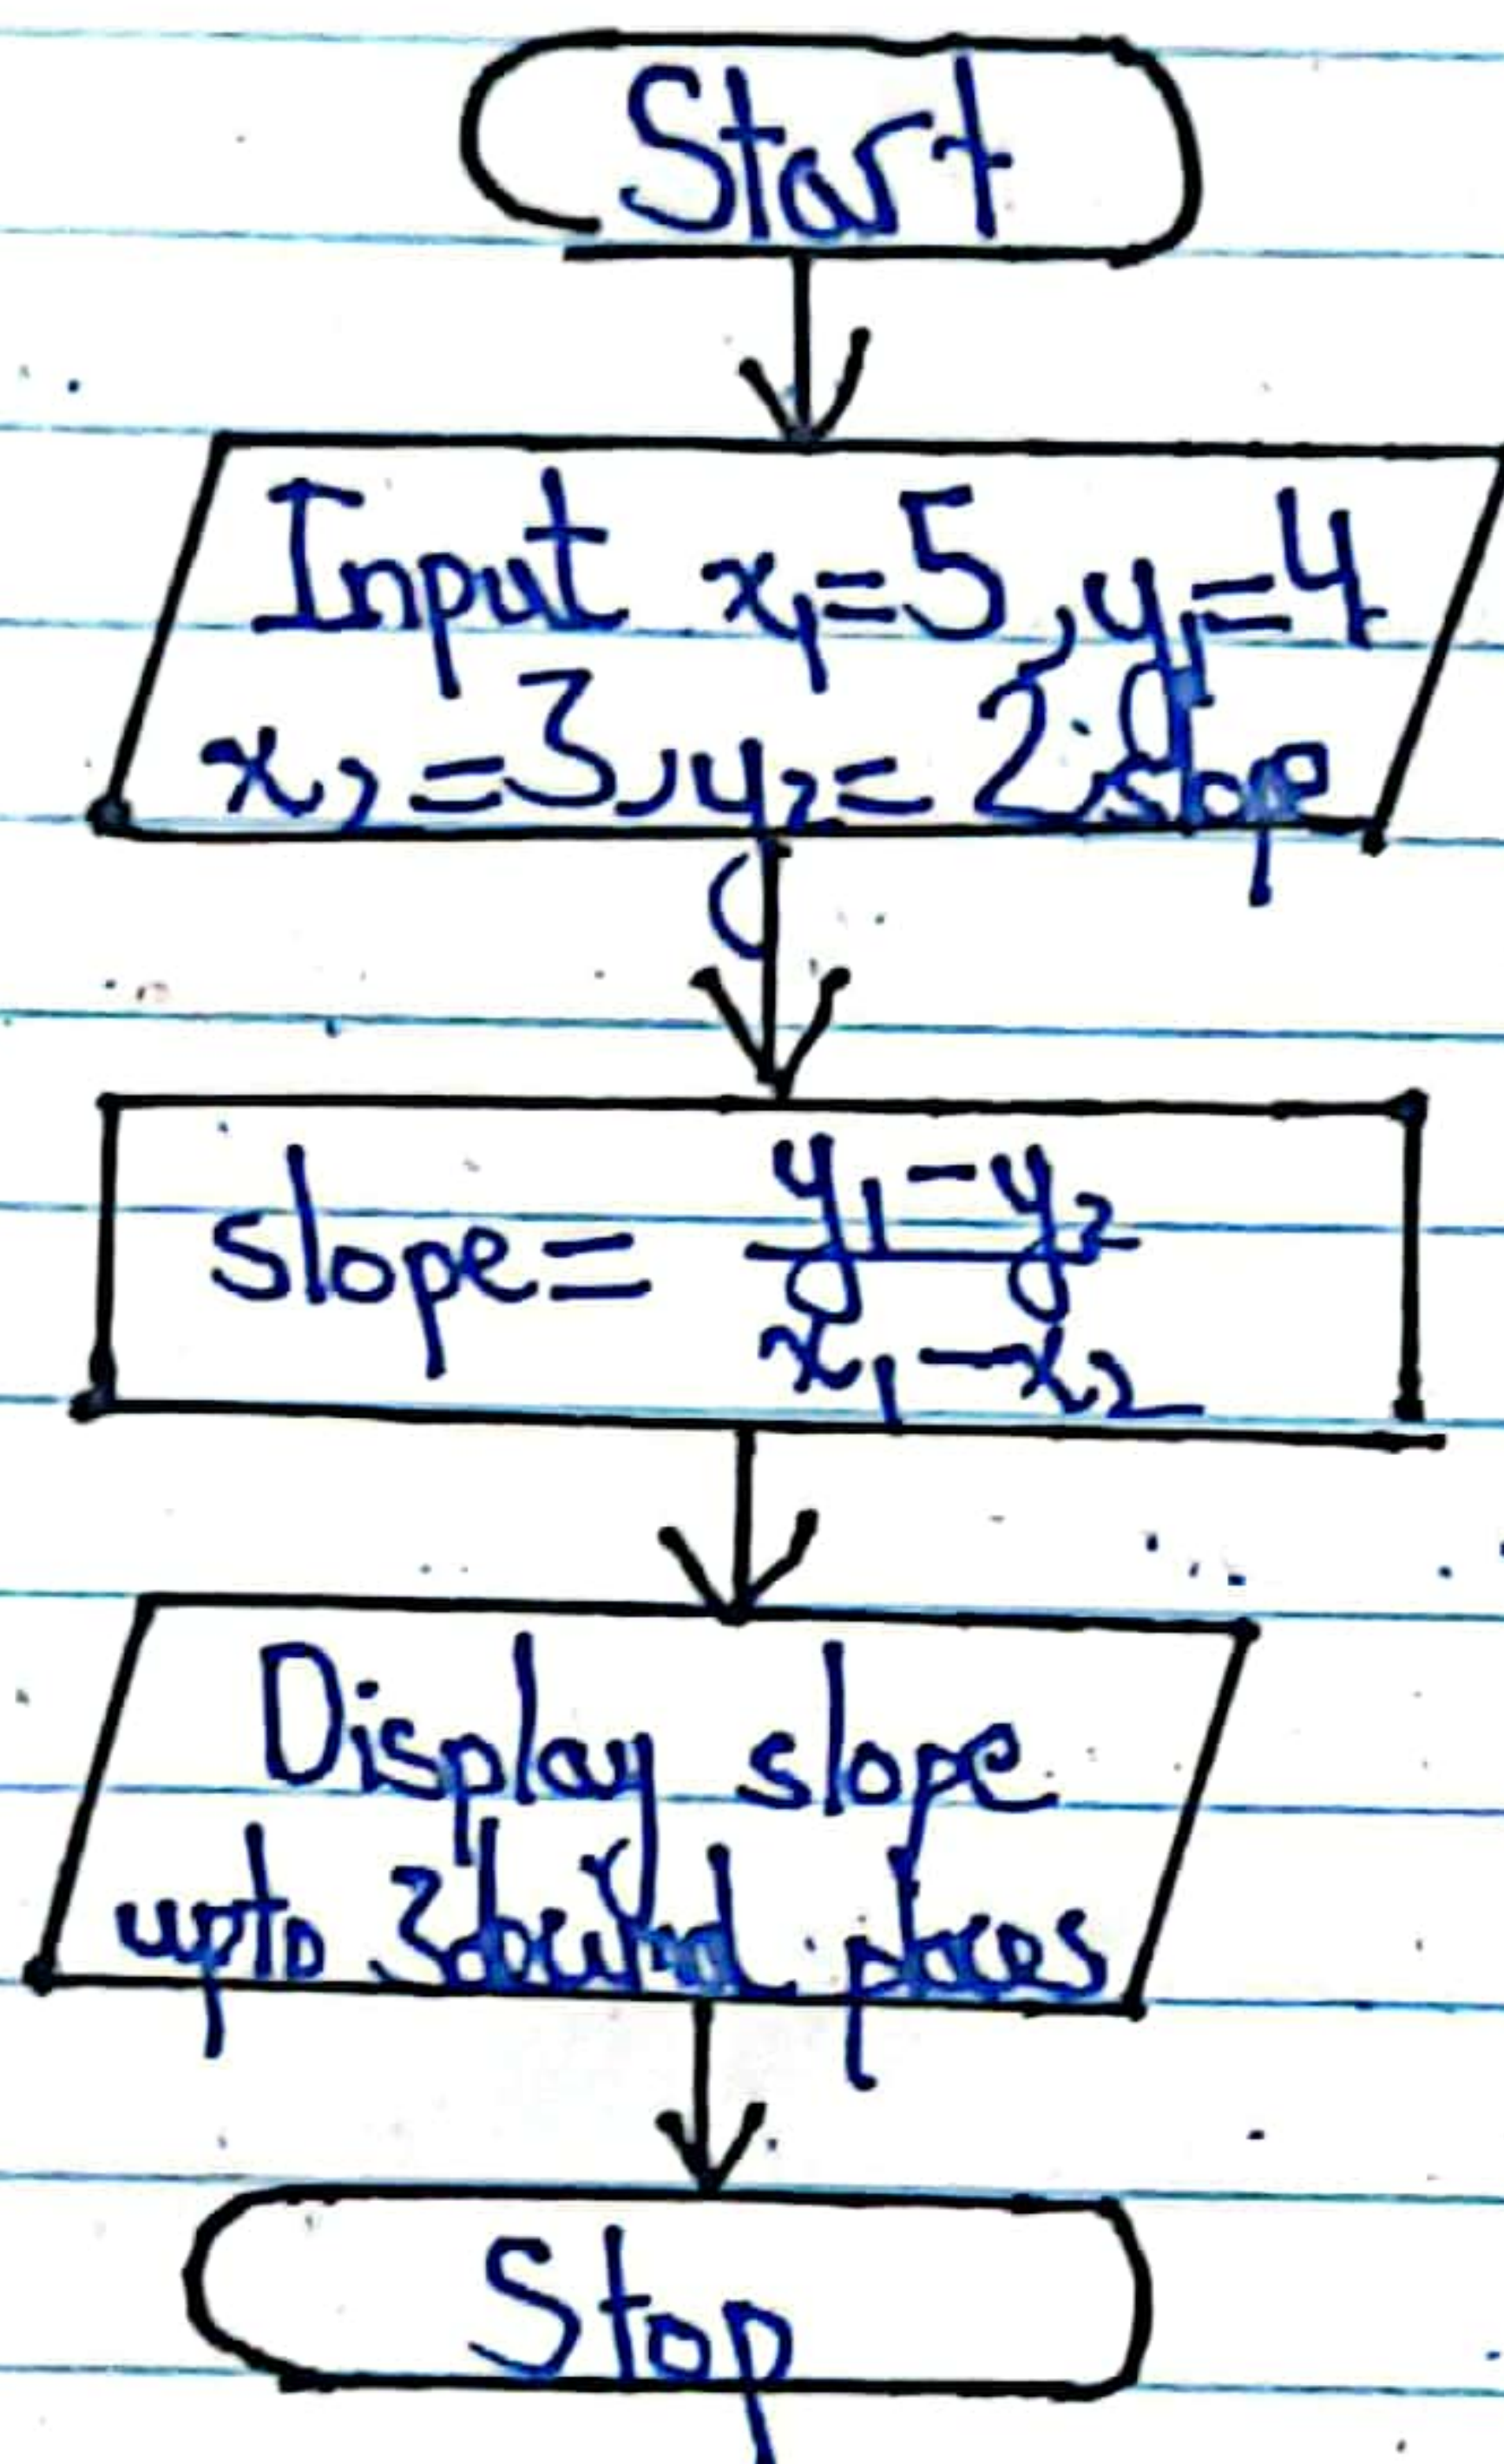 Start
Input x₁=5, y₁=4
x₂=3, y₂=2, slope
slope= y₁-y₂
x₁-x₂
Display slope
upto 3 decimal places
Stop